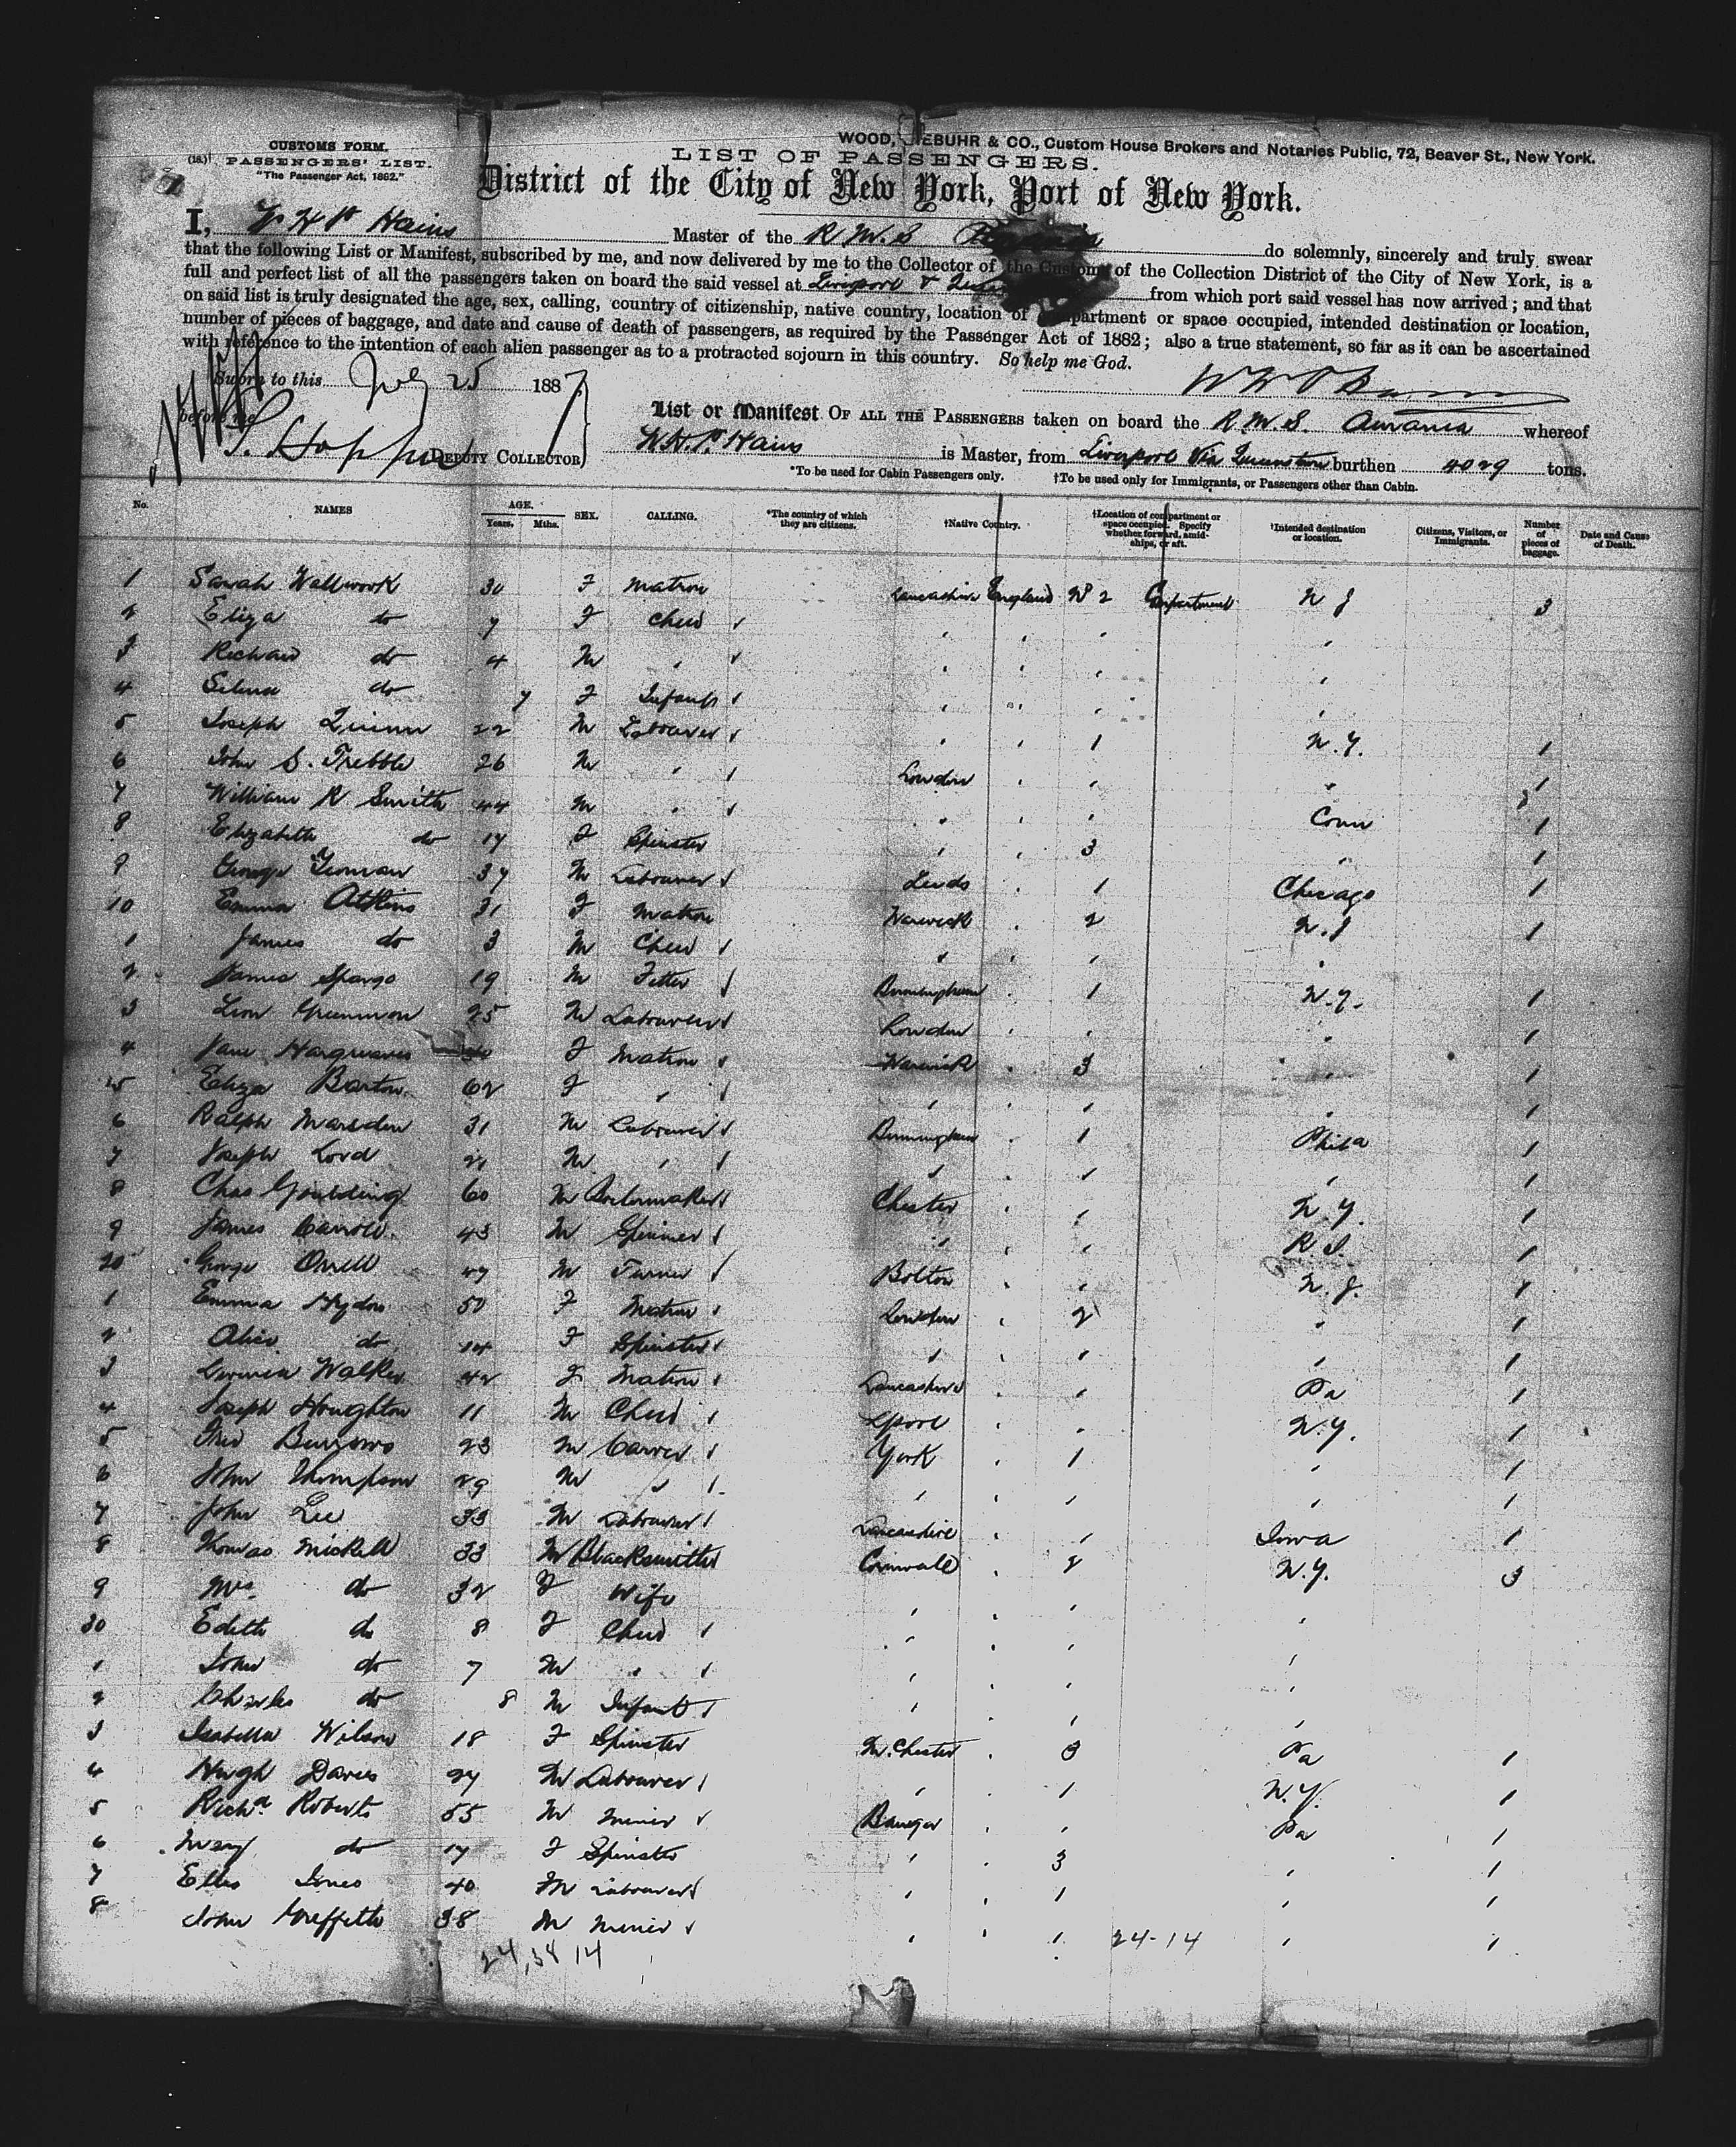 WOOD, EBUHR & CO., Custom House Brokers and Notaries Public, 72, Beaver St., New York.
CUSTOMS FORM.
(18.) PASSENGERS' LIST.
"The Passenger Act, 1882."
LIST OF PASSENGERS.
District of the City of New York, Port of New York.
I, W H P Hains Master of the R. M. S do solemnly, sincerely and truly swear
that the following List or Manifest, subscribed by me, and now delivered by me to the Collector of the Customs of the Collection District of the City of New York, is a
full and perfect list of all the passengers taken on board the said vessel at Liverpool & from which port said vessel has now arrived; and that
on said list is truly designated the age, sex, calling, country of citizenship, native country, location of compartment or space occupied, intended destination or location,
number of pieces of baggage, and date and cause of death of passengers, as required by the Passenger Act of 1882; also a true statement, so far as it can be ascertained
with reference to the intention of each alien passenger as to a protracted sojourn in this country. So help me God.
Sworn to this July 25 1887
before me
Deputy Collector
List or Manifest OF ALL THE PASSENGERS taken on board the R. M. S. Aurania whereof
W. H. P. Hains is Master, from Liverpool Via Queenstown burthen 4029 tons.
*To be used for Cabin Passengers only. †To be used only for Immigrants, or Passengers other than Cabin.
No. NAMES AGE. Years. Mths. SEX. CALLING. *The country of which they are citizens. †Native Country. †Location of compartment or space occupied. Specify whether forward, amidships, or aft. †Intended destination or location. Citizens, Visitors, or Immigrants. Number of pieces of baggage. Date and Cause of Death.
1 Sarah Wallwork 30 F Matron Lancashire England No 2 Compartment N J 3
2 Eliza do 7 F Child
3 Richard do 4 M "
4 Selina do 7 F Infant
5 Joseph Quinn 22 M Labourer " " 1 N.Y. 1
6 John S. Trebble 26 M " London " " " 1
7 William R Smith 44 M " " " " Conn 1
8 Elizabeth do 17 F Spinster " " 3 " 1
9 George Yeoman 37 M Labourer Leeds " 1 Chicago 1
10 Emma Atkins 31 F Matron Warwick " 2 N.J 1
1 James do 3 M Child
2 James Spargo 19 M Fitter Birmingham " 1 N.Y. 1
3 Leon Greenmon 25 M Labourer London " " " 1
4 Jane Hargreaves F Matron Warwick " 3 " 1
5 Eliza Barton 62 F " " " " " 1
6 Ralph Marsden 31 M Labourer Birmingham " 1 Phila 1
7 Joseph Lord 21 M " " " " 1
8 Chas Goulding 60 M Boilermaker Chester " " N.Y. 1
9 James Carroll 43 M Spinner " " " R.I. 1
20 George Orrell 47 M Turner Bolton " " N.J. 1
1 Emma 50 F Matron London " 2 " 1
2 Alice do 14 F Spinster " " " 1
3 Walker 42 F Matron Lancashire " " Pa 1
4 Joseph Houghton 11 M Child Lpool " " N.Y. 1
5 Fred Burrows 23 M Carver York " 1 " 1
6 John Thompson 29 M " " " " " 1
7 John Lee 33 M Labourer Lancashire " " Iowa 1
8 Thomas Mickell 33 M Blacksmith Cornwall " 2 N.Y. 3
9 Mrs. do 32 F Wife
30 Edith do 8 F Child
1 John do 7 M "
2 Charles do 8 M Infant
3 Isabella Wilson 18 F Spinster M.Chester " 3 Pa 1
4 Hugh Davies 27 M Labourer " " 1 N.Y. 1
5 Richd. Roberts 55 M Miner Bangor " " Pa 1
6 Mary do 17 F Spinster " " 3 " 1
7 Ellis Jones 40 M Labourer " " 1 " 1
8 John Griffith 38 M Miner " " 1 24-14 " 1
24, 38 14